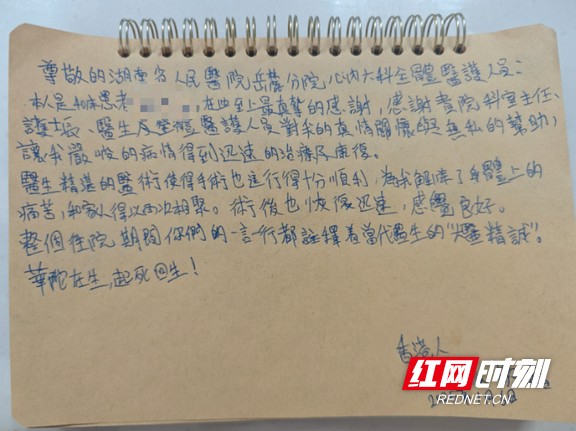 尊敬的湖南省人民醫院岳麓分院心内大科全體醫護人员:
本人是40床患者 在此至上最真摯的感謝,感謝貴院科室主任、
護士長、醫生及全體醫護人员對我的真情關懷與無私的幫助,
讓我嚴峻的病情得到迅速的治療及康復。
醫生精湛的醫術使得手術也進行得十份順利,為我解除了身體上的
病苦,和家人得以再次相聚。術後也恢復迅速,感覺良好。
整個住院期間你們的一言一行都詮釋着當代醫生的"大醫精誠"。
華陀在生,起死回生!
香港人
红网时刻
REDNET.CN